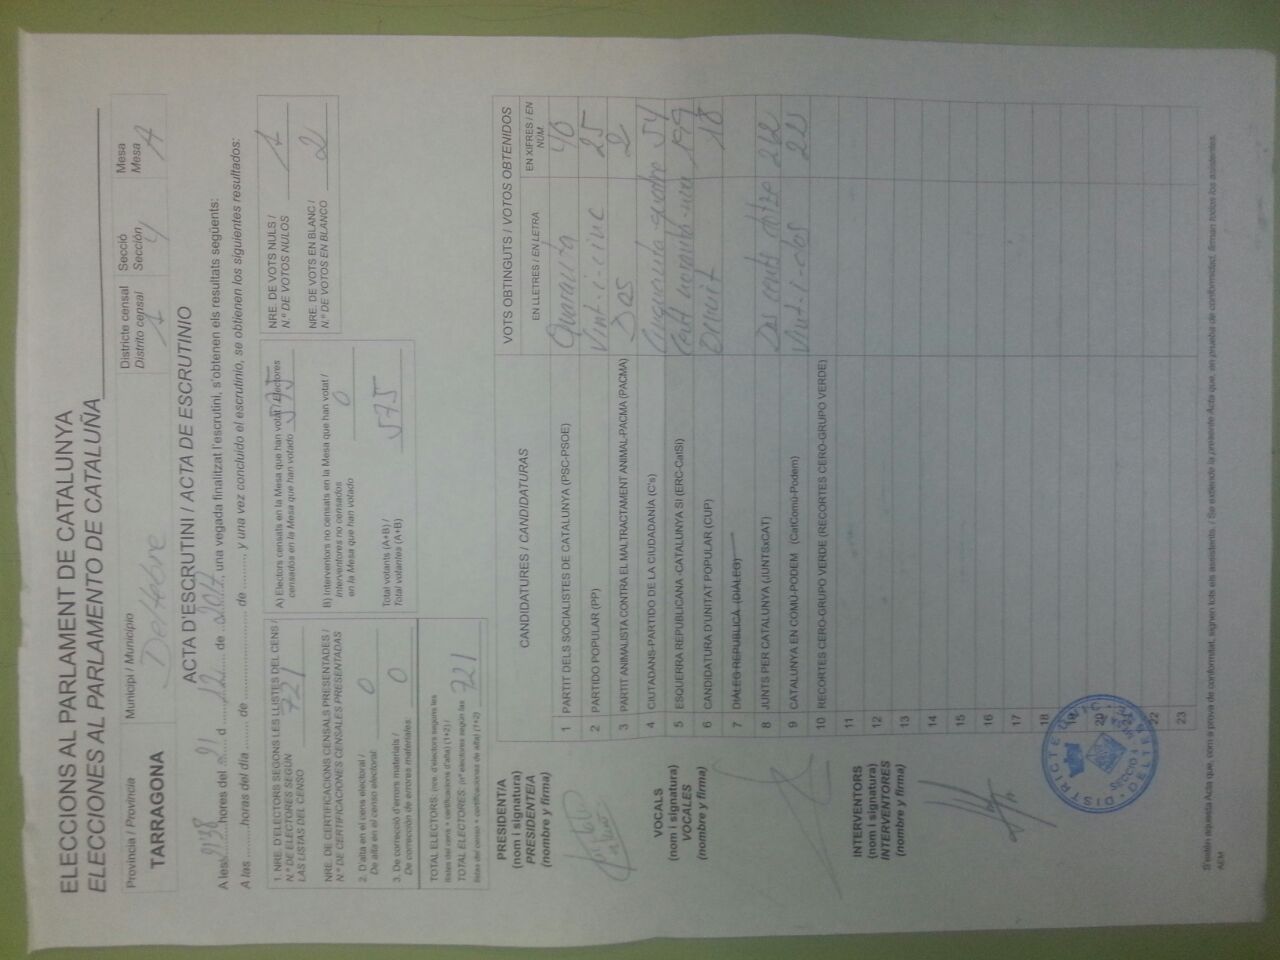 ELECCIONS AL PARLAMENT DE CATALUNYA
ELECCIONES AL PARLAMENTO DE CATALUÑA
Província / Provincia
TARRAGONA
Municipi / Municipio
Deltebre
Districte censal
Distrito censal
1
Secció
Sección
4
Mesa
Mesa
A
ACTA D'ESCRUTINI / ACTA DE ESCRUTINIO
A les ......... hores del 21 d ...12... de ..2017.., una vegada finalitzat l'escrutini, s'obtenen els resultats següents:
A las .......... horas del día .......... de .................... de .......... y una vez concluido el escrutinio, se obtienen los siguientes resultados:
1. NRE. D'ELECTORS SEGONS LES LLISTES DEL CENS /
N.º DE ELECTORES SEGÚN
LAS LISTAS DEL CENSO
721
NRE. DE CERTIFICACIONS CENSALS PRESENTADES /
N.º DE CERTIFICACIONES CENSALES PRESENTADAS
2. D'alta en el cens electoral /
De alta en el censo electoral:
0
3. De correcció d'errors materials /
De corrección de errores materiales:
0
TOTAL ELECTORS: (nre. d'electors segons les
llistes del cens + certificacions d'alta) (1+2) /
TOTAL ELECTORES: (nº electores según las
listas del censo + certificaciones de alta) (1+2)
721
A) Electors censats en la Mesa que han votat / Electores
censados en la Mesa que han votado
575
B) Interventors no censats en la Mesa que han votat /
Interventores no censados
en la Mesa que han votado
0
Total votants (A+B) /
Total votantes (A+B)
575
NRE. DE VOTS NULS /
N.º DE VOTOS NULOS
1
NRE. DE VOTS EN BLANC /
N.º DE VOTOS EN BLANCO
2
PRESIDENT/A
(nom i signatura)
PRESIDENTE/A
(nombre y firma)
VOCALS
(nom i signatura)
VOCALES
(nombre y firma)
INTERVENTORS
(nom i signatura)
INTERVENTORES
(nombre y firma)
CANDIDATURES / CANDIDATURAS
VOTS OBTINGUTS / VOTOS OBTENIDOS
EN LLETRES / EN LETRA
EN XIFRES / EN NÚM.
1 PARTIT DELS SOCIALISTES DE CATALUNYA (PSC-PSOE) Quaranta 40
2 PARTIDO POPULAR (PP) Vint-i-cinc 25
3 PARTIT ANIMALISTA CONTRA EL MALTRACTAMENT ANIMAL-PACMA (PACMA) Dos 2
4 CIUTADANS-PARTIDO DE LA CIUDADANÍA (C's) Cinquanta-quatre 54
5 ESQUERRA REPUBLICANA -CATALUNYA SI (ERC-CatSí) Cent noranta-nou 199
6 CANDIDATURA D'UNITAT POPULAR (CUP) Divuit 18
7 DIÀLEG REPUBLICÀ (DIÀLEG)
8 JUNTS PER CATALUNYA (JUNTSxCAT) Dos cents dotze 212
9 CATALUNYA EN COMÚ-PODEM (CatComú-Podem) Vint-i-dos 22
10 RECORTES CERO-GRUPO VERDE (RECORTES CERO-GRUPO VERDE)
11
12
13
14
15
16
17
18
19
20
21
22
23
S'estén aquesta Acta que, com a prova de conformitat, signen tots els assistents. / Se extiende la presente Acta que, en prueba de conformidad, firman todos los asistentes.